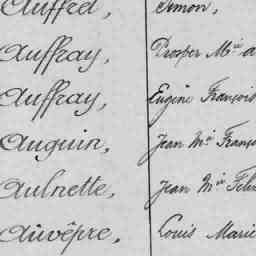 Auffret, Simon,
Auffray, Prosper M.ie
Auffray, Eugène François
Auguin, Jean M.ie Franço
Aulnette, Jean M.ie Féli
Auvêpre, Louis Marie